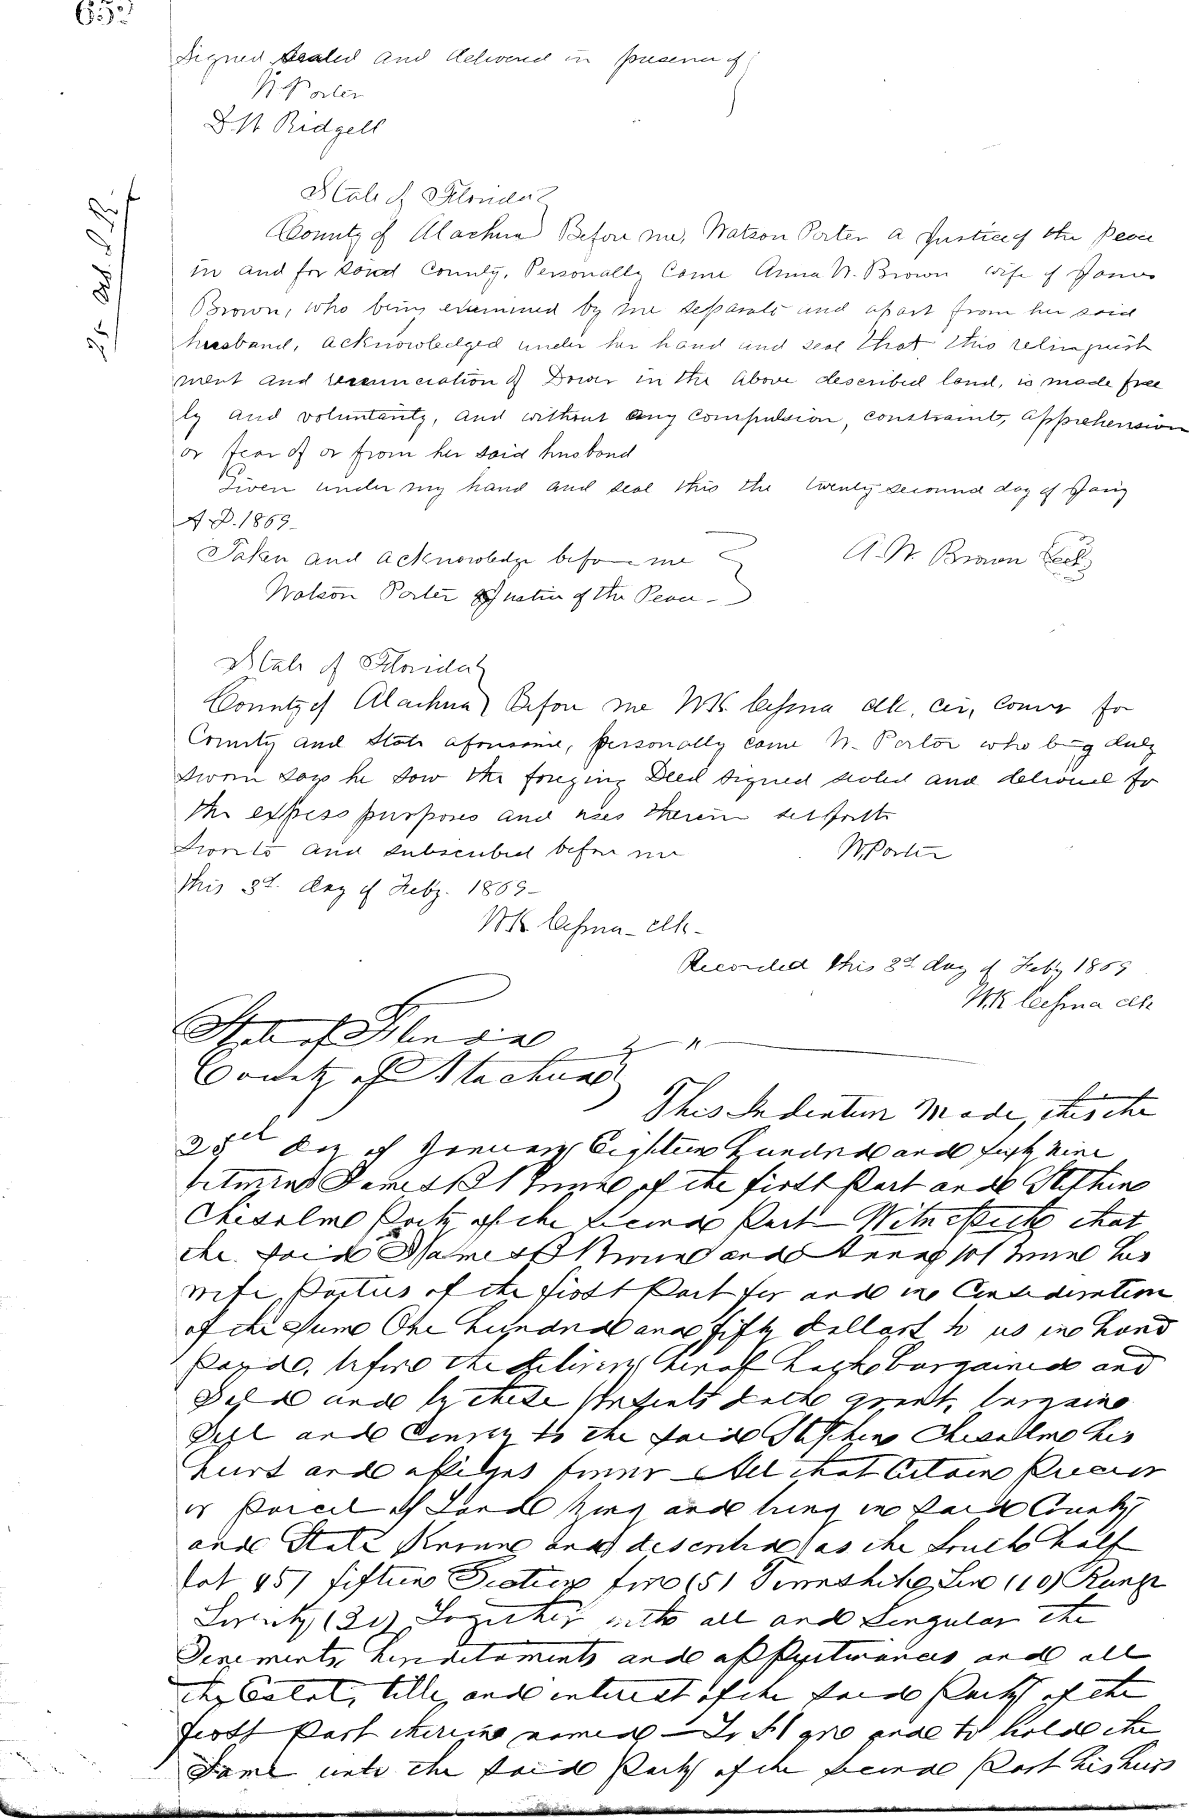 65
Signed Sealed and delivered in presence of
W Porter
D. W Ridgell
State of Florida
County of Alachua Before me, Watson Porter a Justice of the peace
in and for said County, Personally Come Anna W. Brown wife of James
Brown, who being examined by me separate and apart from her said
husband, acknowledged under her hand and seal that this relinquish
ment and renunciation of Dower in the above described land, is made free
ly and voluntarily, and without any compulsion, constraint, apprehension
or fear of or from her said husband
Given under my hand and seal this the twenty second day of Jany
A.D. 1869-
Taken and acknowledge before me
A. W. Brown
Watson Porter Justice of the Peace-
State of Florida
County of Alachua Before me W.K. Cessna clk. cir, Court for
County and State aforesaid, personally came W. Porter who being duly
sworn says he saw the foregoing Deed signed sealed and delivered for
the express purposes and uses therein set forth
Sworn to and subscribed before me W. Porter
this 3d. day of Feby. 1869-
W.K. Cessna - clk -
Recorded this 3d day of Feby 1869
W.K Cessna clk
State of Florida
County of Alachua
This Indenture Made, this the
day of January Eighteen hundred and sixty nine
between James B Brown of the first Part and Stephen
Chisolme Party of the second Part Witnesseth that
the said James B Brown and Anna W Brown his
wife, Parties of the first Part for and in Consideration
of the Sum One hundred and fifty dollars to us in hand
Paid, before the delivery hereof hath bargained and
Sold and by these presents doth grant, bargain
Sell and Convey to the said Stephen Chisolme his
heirs and assigns forever All that Certain Piece
or parcel of Land lying and being in said County
and State Known and described as the South half
lot fifteen Section five (5) Township Ten (10) Range
Twenty (20) Together with all and Singular the
Tenements, hereditaments and appurtenances and all
the Estate, title, and interest of the said Party of the
first Part therein named - To Have and to hold the
Same unto the said Party of the second Part his heirs